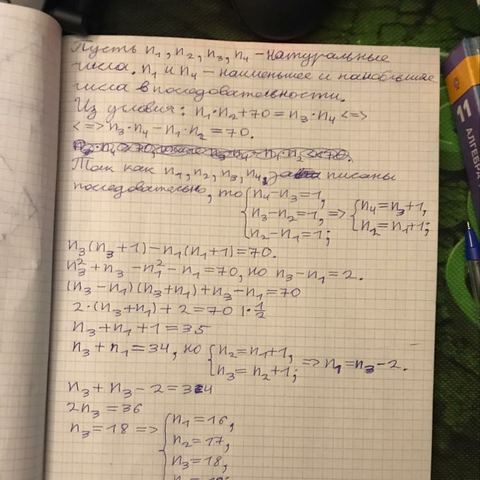 Пусть n₁, n₂, n₃, n₄ – натуральные
числа. n₁ и n₄ – наименьшее и наибольшее
числа в последовательности.
Из условия: n₁·n₂+70=n₃·n₄ <=>
<=> n₃·n₄–n₁·n₂=70.
Так как n₁, n₂, n₃, n₄ записаны
последовательно, то { n₄–n₃=1,
n₃–n₂=1, => { n₄=n₃+1,
n₂–n₁=1; n₂=n₁+1;
n₃(n₃+1)–n₁(n₁+1)=70.
n₃²+n₃–n₁²–n₁=70, но n₃–n₁=2.
(n₃–n₁)(n₃+n₁)+n₃–n₁=70
2·(n₃+n₁)+2=70 |·1/2
n₃+n₁+1=35
n₃+n₁=34, но { n₂=n₁+1,
n₃=n₂+1; => n₁=n₃–2.
n₃+n₃–2=34
2n₃=36
n₃=18 => { n₁=16,
n₂=17,
n₃=18,
11